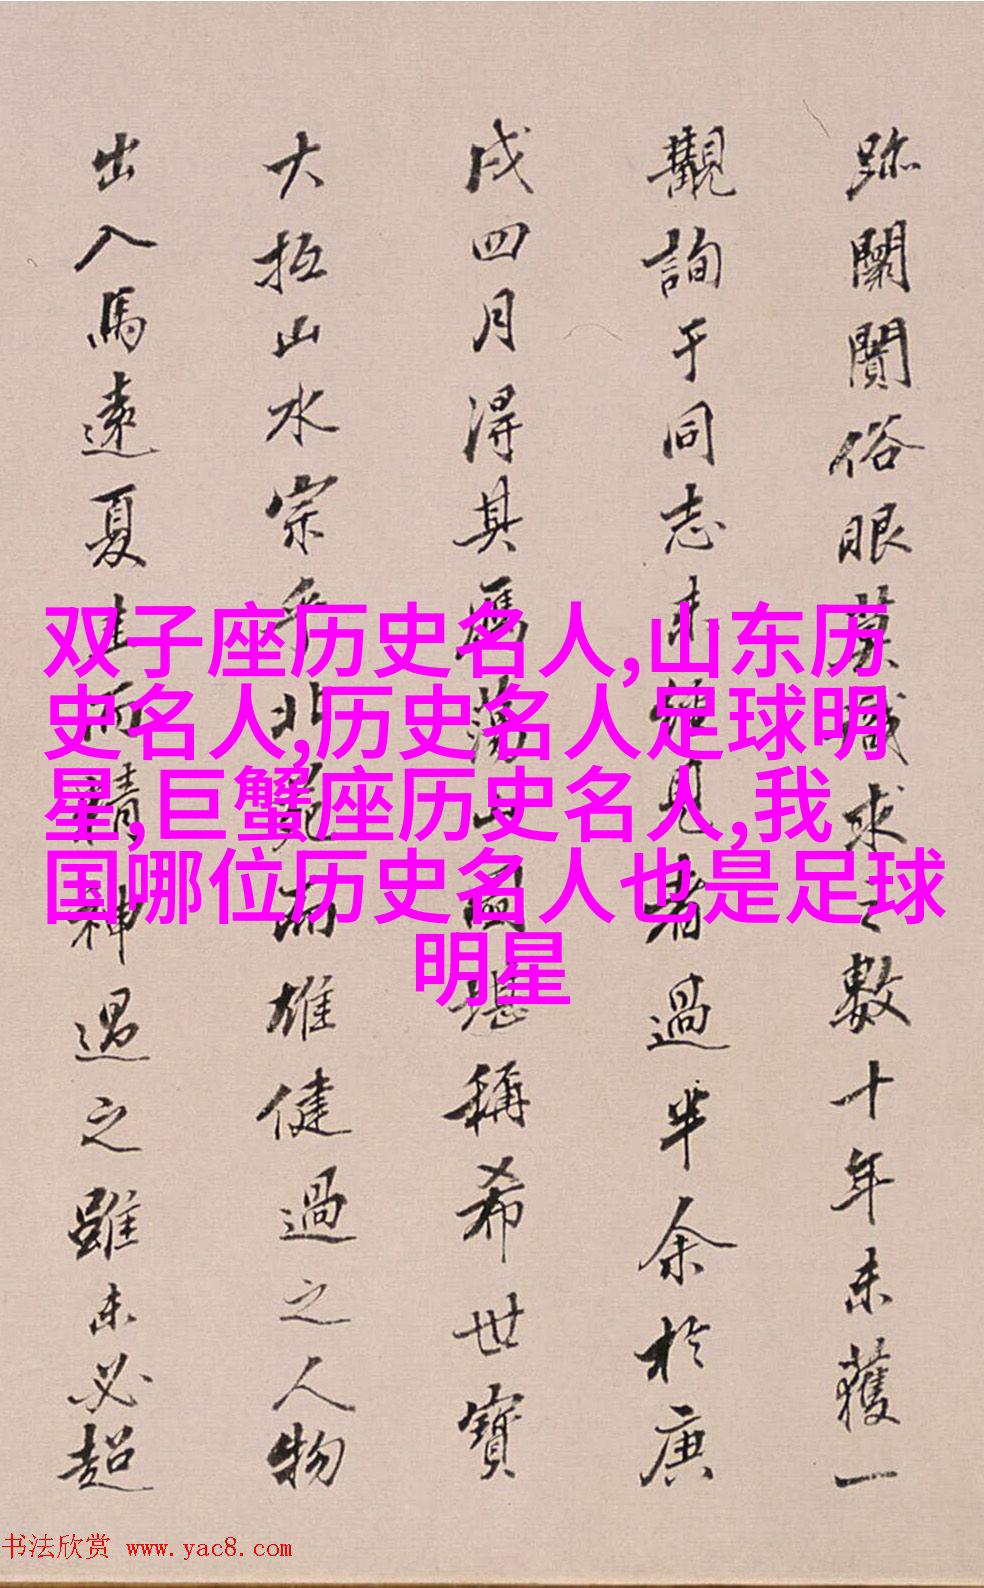 跡闤闠俗眼莫識求之數十年未獲一
觀詢于同志未睹見者過半余於庚
戌四月得其雁蕩山圖堪稱希世寶
大抵山水宗乎北苑而雄健過之人物
出入馬遠夏圭而精神過之雖未必超
双子座历史名人,山东历
史名人,历史名人足球明
星,巨蟹座历史名人,我
国哪位历史名人也是足球
明星
书法欣赏 www.yac8.com